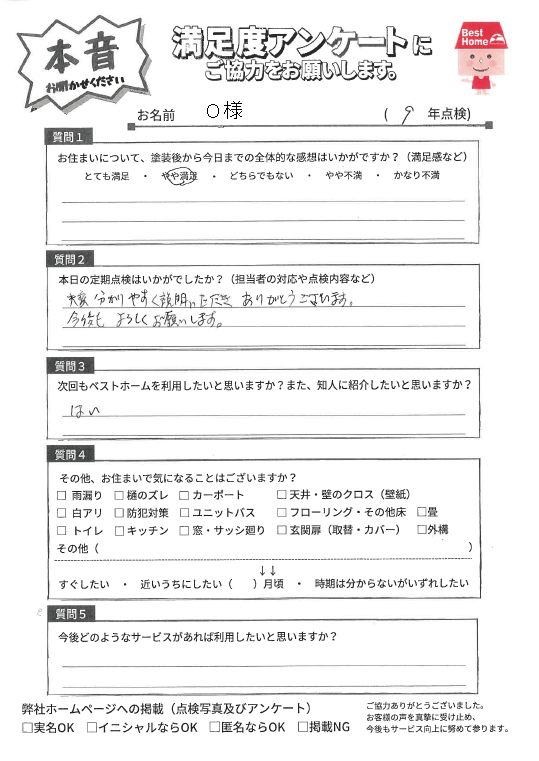 本音
お聞かせください
満足度アンケートに
ご協力をお願いします。
Best
Home
お名前 O様 ( 9 年点検)
質問1
お住まいについて、塗装後から今日までの全体的な感想はいかがですか？（満足感など）
とても満足 ・ やや満足 ・ どちらでもない ・ やや不満 ・ かなり不満
質問2
本日の定期点検はいかがでしたか？（担当者の対応や点検内容など）
大変 分かりやすく説明いただき ありがとうございます。
今後も よろしくお願いします。
質問3
次回もベストホームを利用したいと思いますか？また、知人に紹介したいと思いますか？
はい
質問4
その他、お住まいで気になることはございますか？
□ 雨漏り □ 樋のズレ □ カーポート □ 天井・壁のクロス（壁紙）
□ 白アリ □ 防犯対策 □ ユニットバス □ フローリング・その他床 □畳
□ トイレ □ キッチン □ 窓・サッシ廻り □ 玄関扉（取替・カバー） □外構
その他（ ）
↓↓
すぐしたい ・ 近いうちにしたい（ ）月頃 ・ 時期は分からないがいずれしたい
質問5
今後どのようなサービスがあれば利用したいと思いますか？
弊社ホームページへの掲載（点検写真及びアンケート）
□実名OK □イニシャルならOK □匿名ならOK □掲載NG
ご協力ありがとうございました。
お客様の声を真摯に受け止め、
今後もサービス向上に努めて参ります。